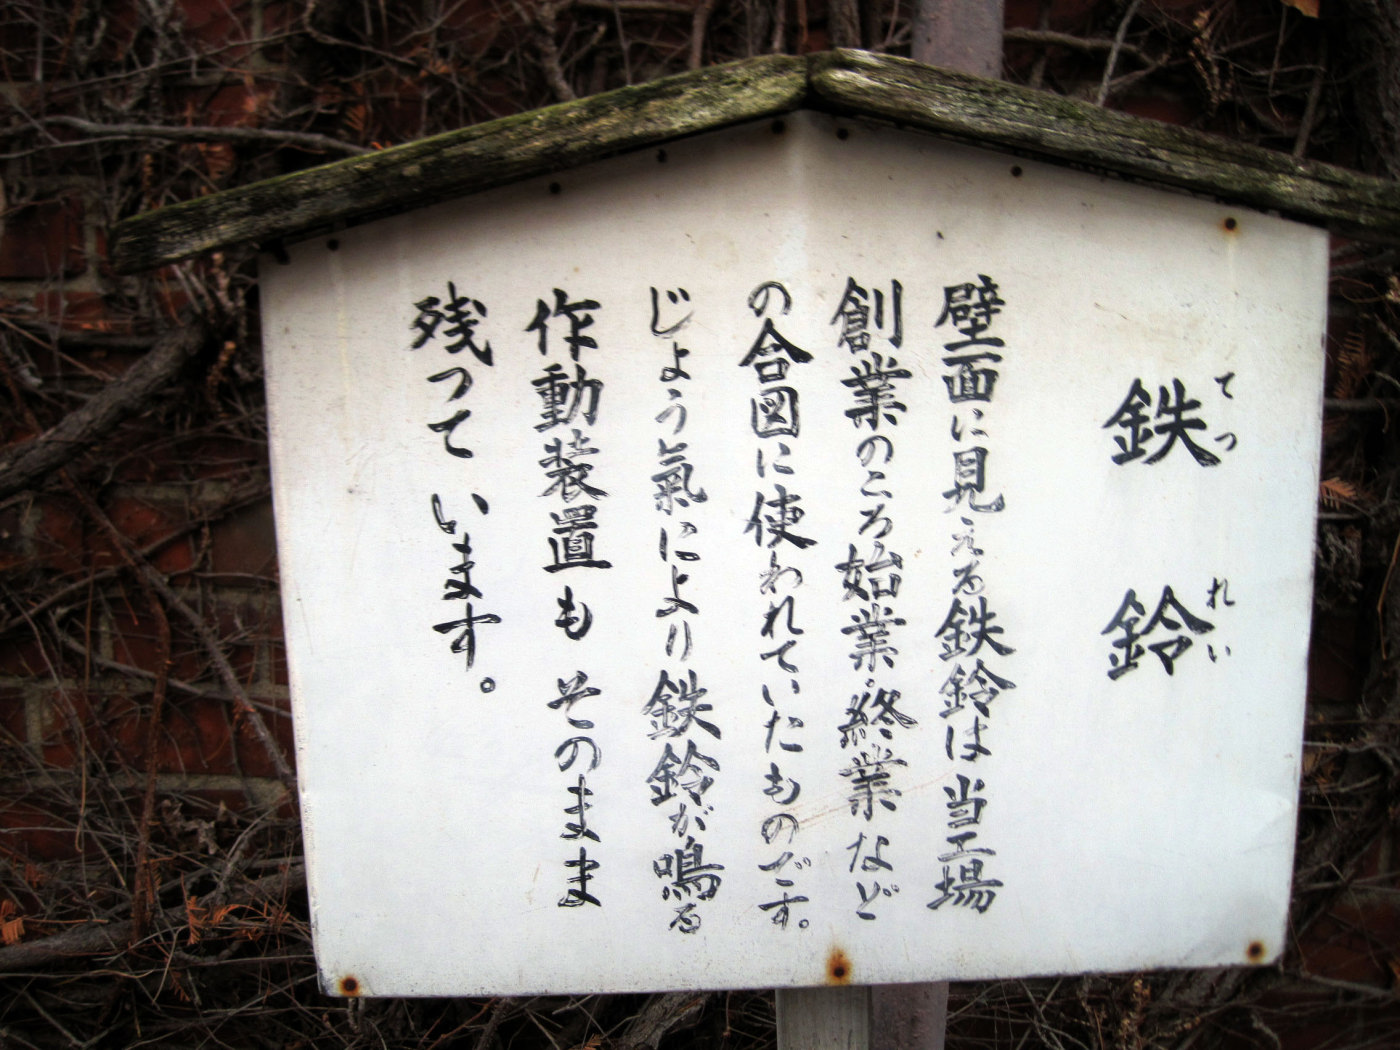 鉄鈴
てつれい
壁面に見える鉄鈴は当工場
創業のころ始業・終業など
の合図に使われていたものです。
じょう氣により鉄鈴が鳴る
作動装置もそのまま
残っています。